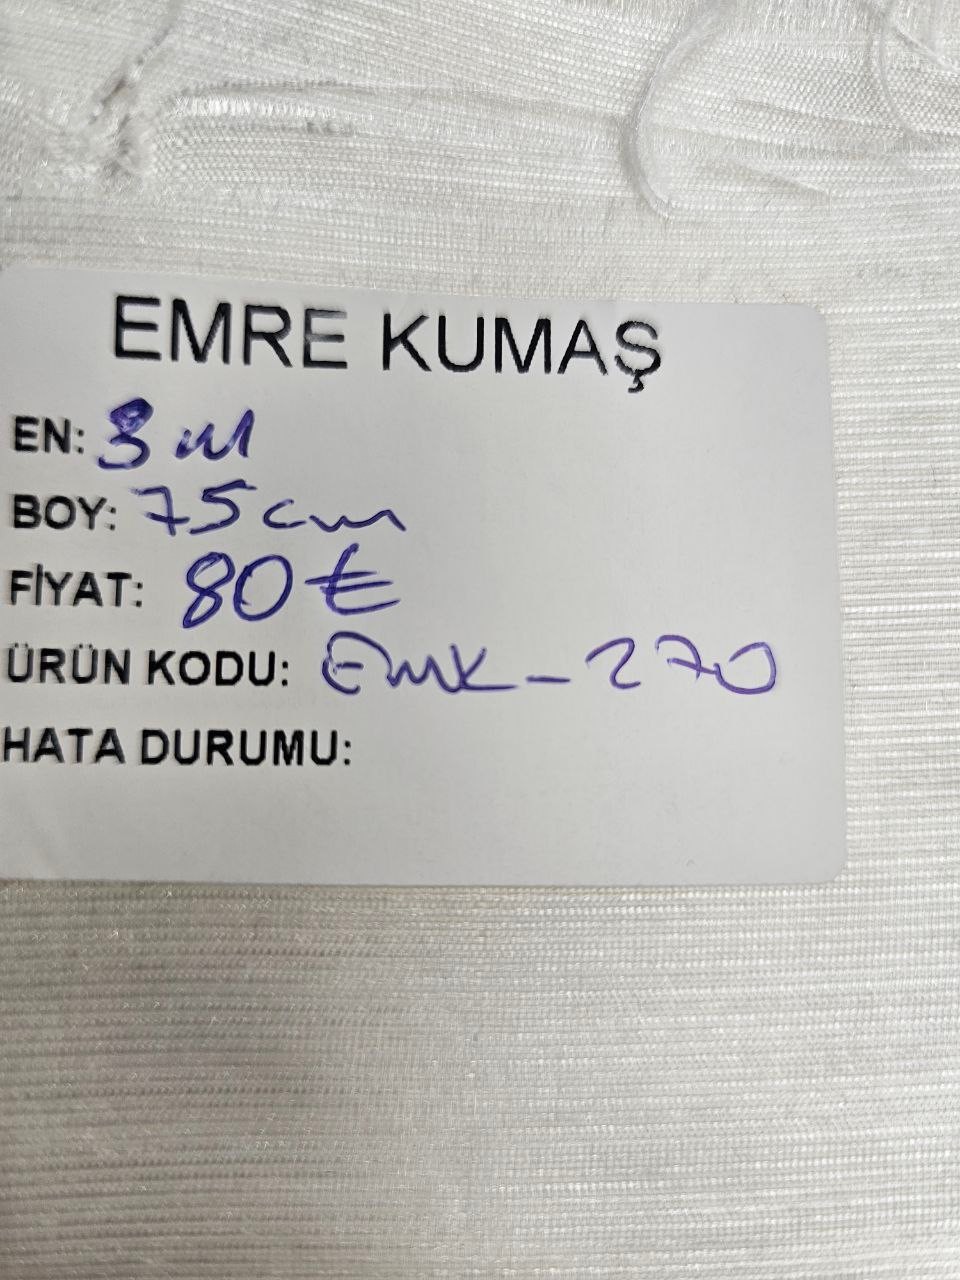 EMRE KUMAŞ
EN: 3 M
BOY: 75 cm
FİYAT: 80 €
ÜRÜN KODU: EMK-270
HATA DURUMU: